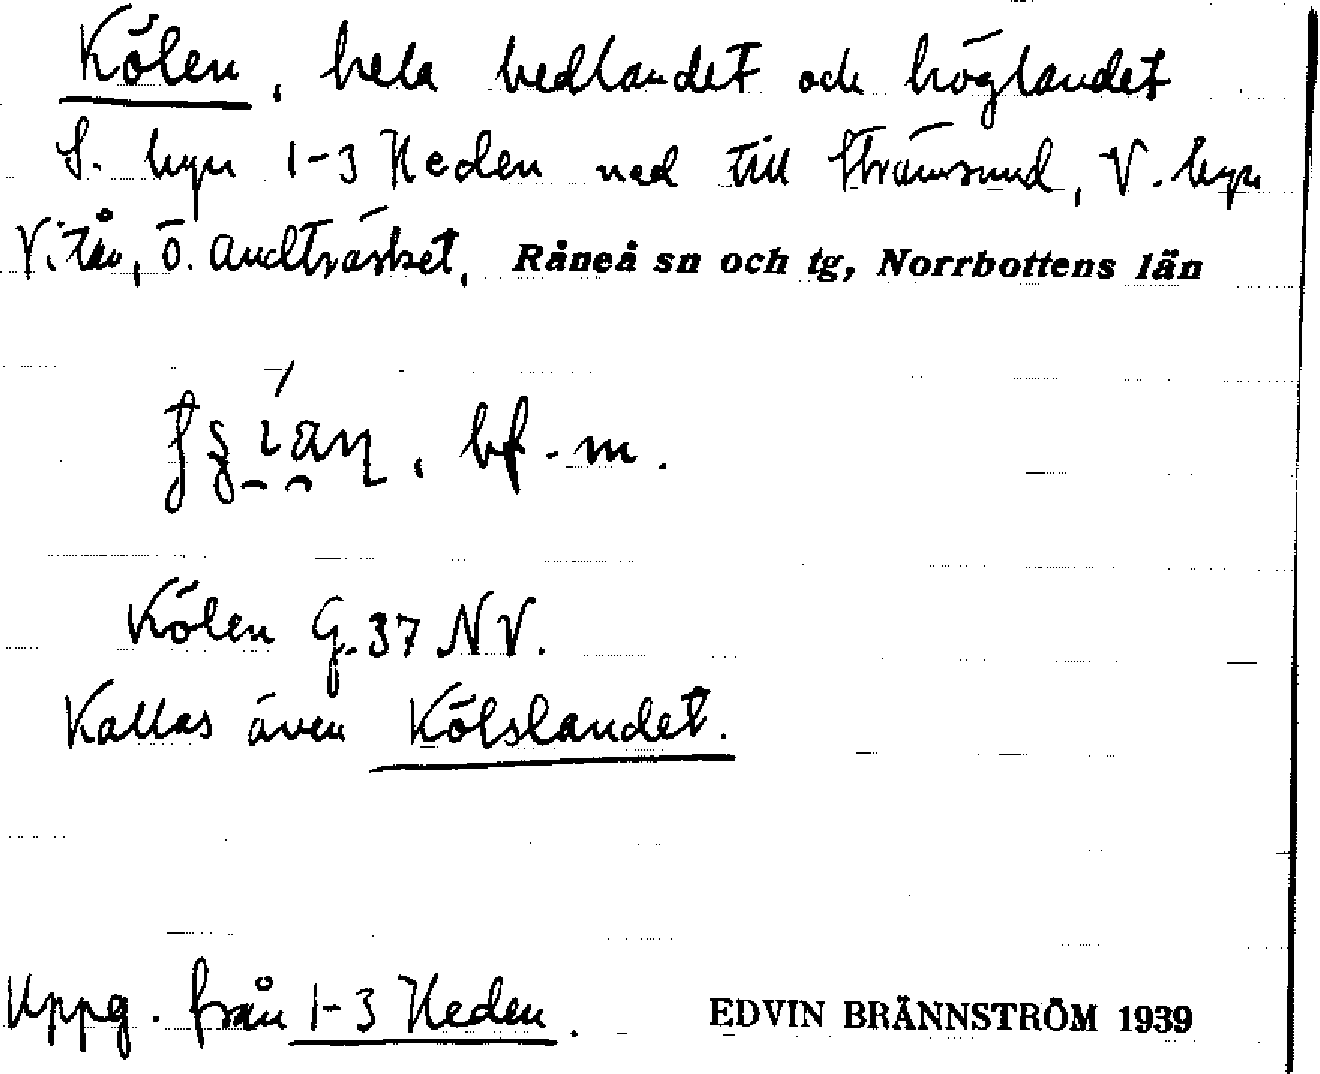 Kölen, hela hedlandet och höglandet
S. byn 1-3 Heden ned till Strömsund, V. byn
Vitån, Ö. Andträsket, Råneå sn och tg, Norrbottens län
bf. m.
Kölen G. 37 NV.
Kallas även Kölslandet.
Uppg. från 1-3 Heden. EDVIN BRÄNNSTRÖM 1939